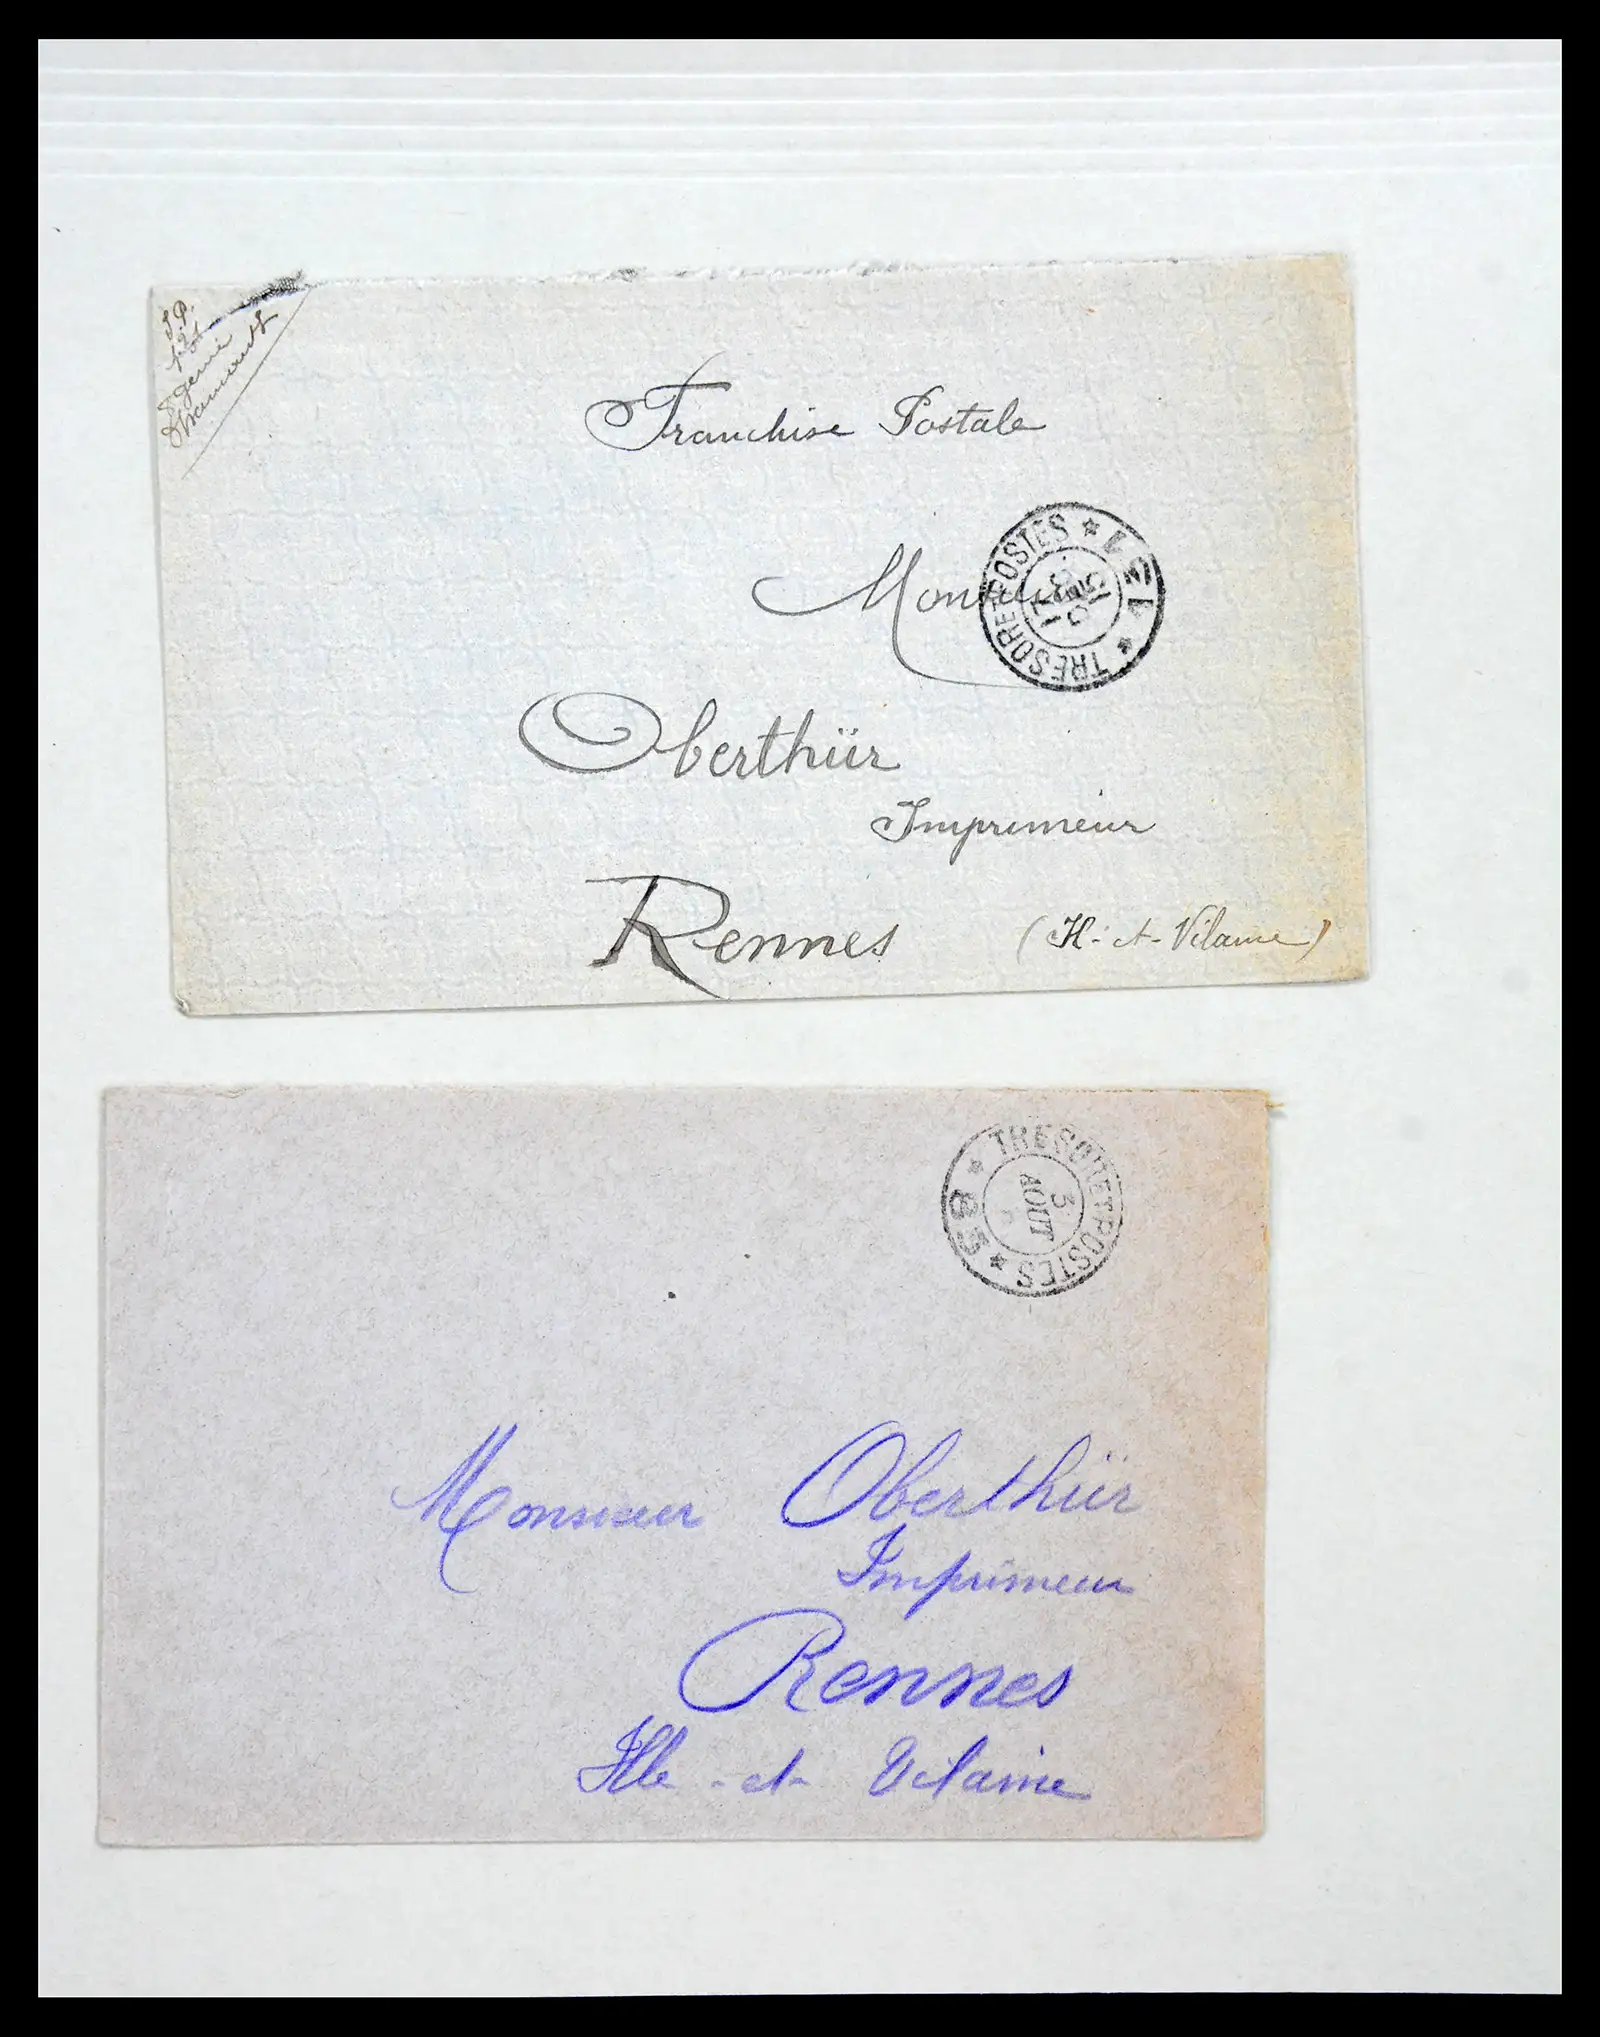 S.P.
121
Franchise Postale
Monsieur
TRESOR ET POSTES * 121 *
Oberthür
Imprimeur
Rennes (Il.-et-Vilaine)
TRESOR ET POSTES * 85 *
3
AOUT
Monsieur Oberthür
Imprimeur
Rennes
Ille-et-Vilaine